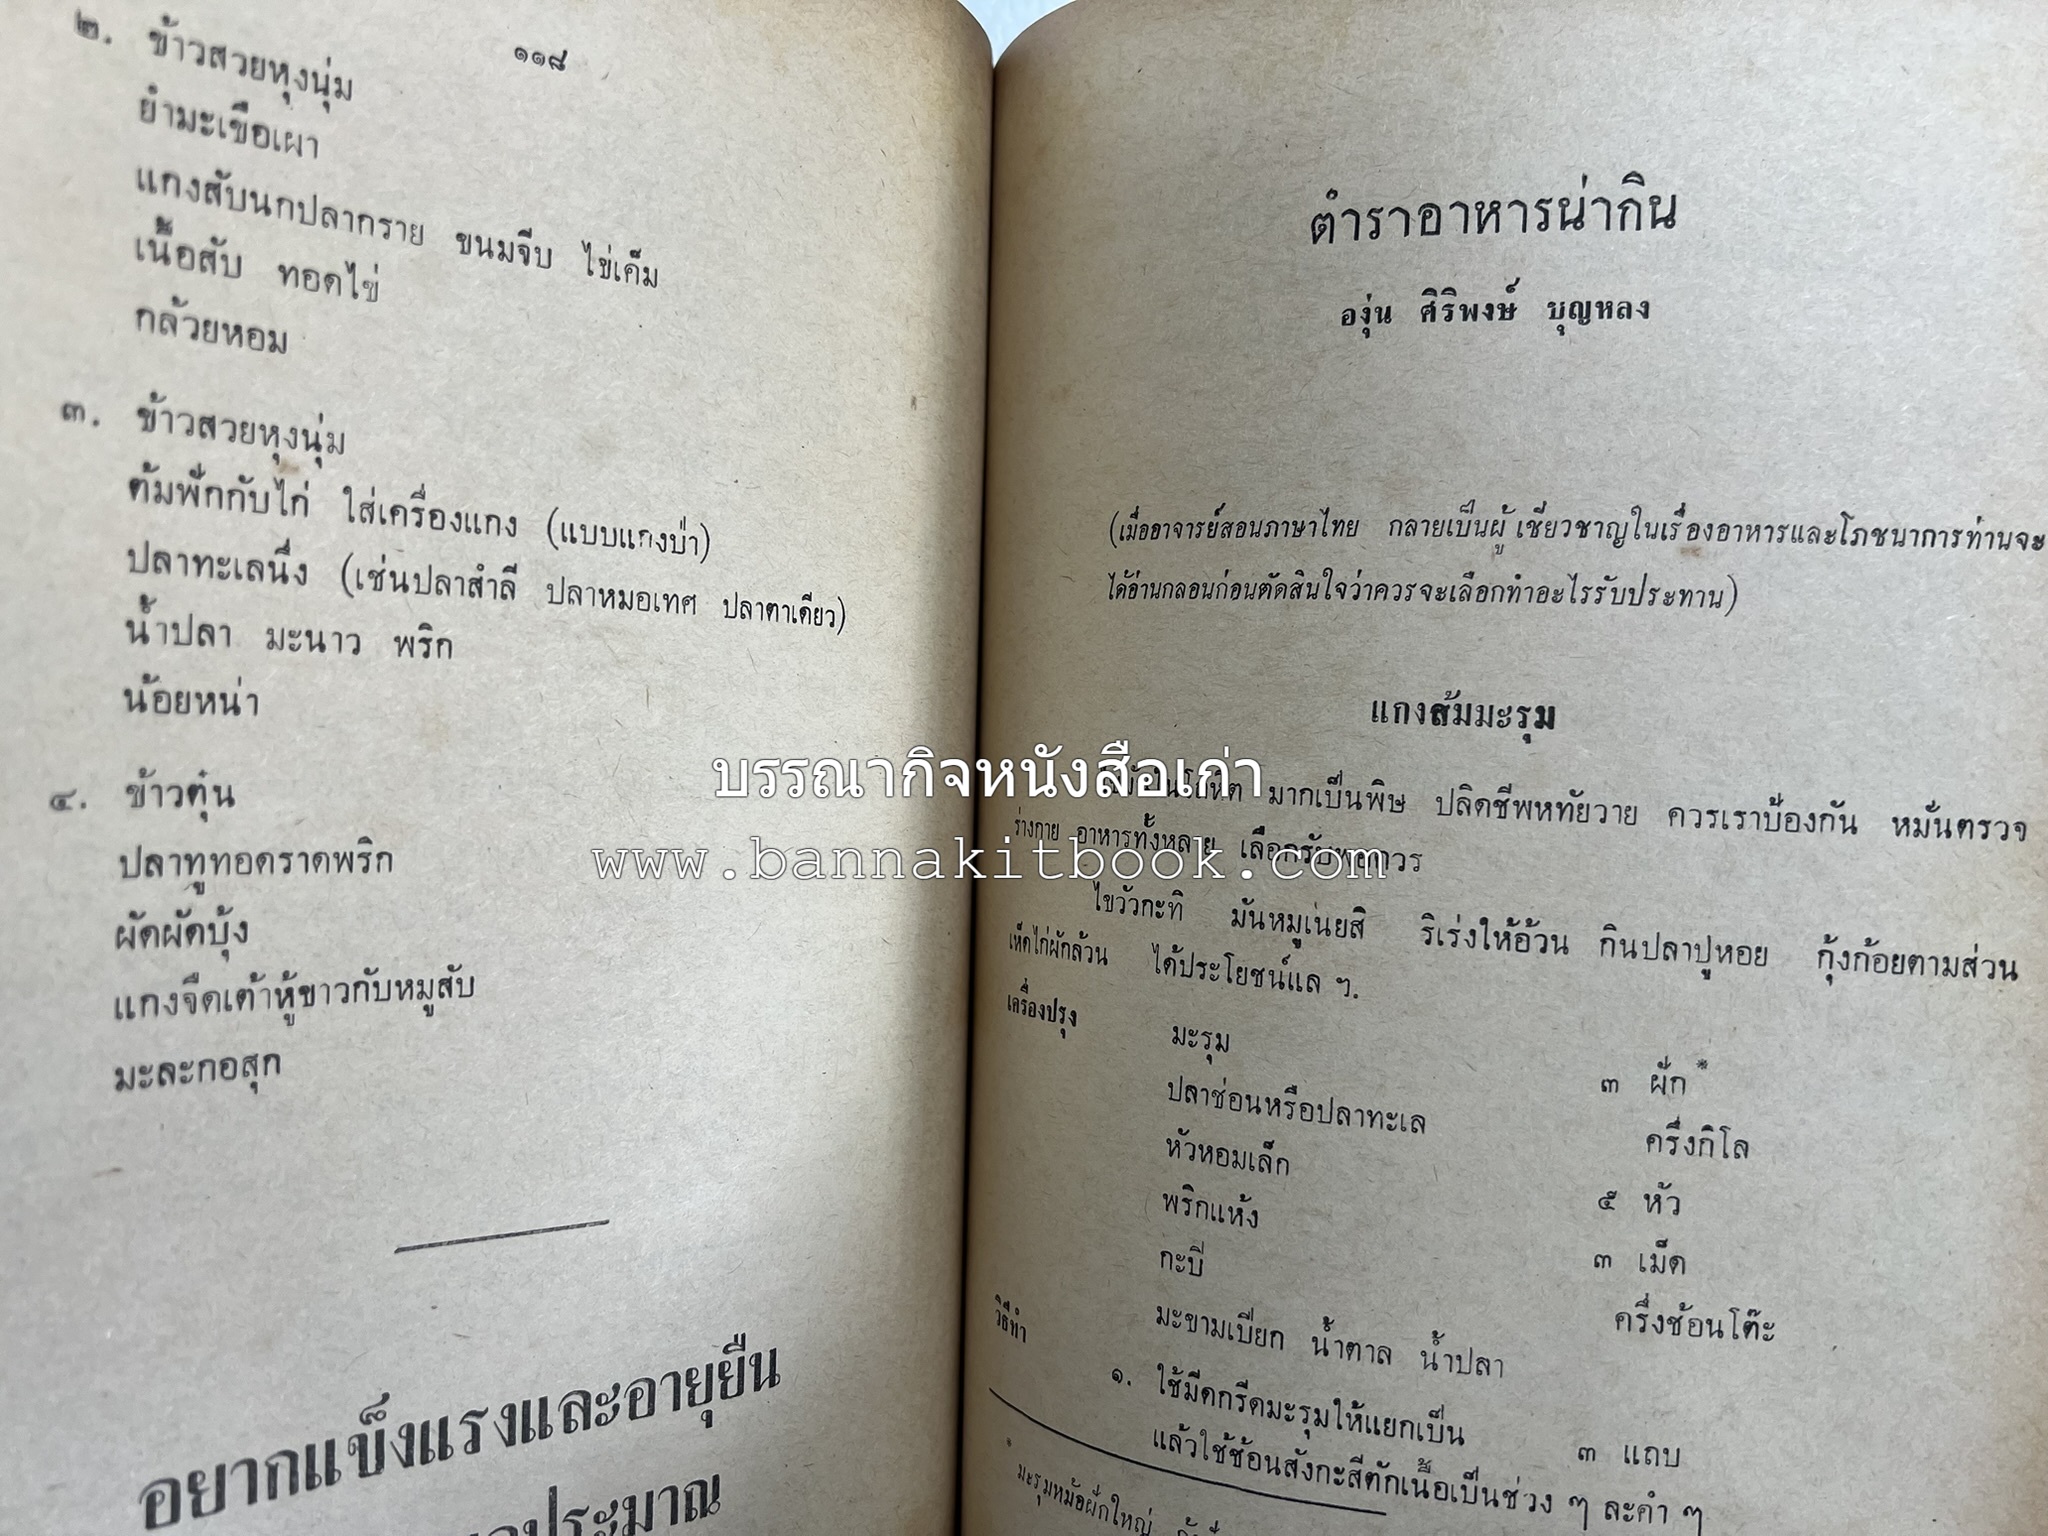 ๑๑๘
๒. ข้าวสวยหุงนุ่ม
ยำมะเขือเผา
แกงสับนกปลากราย ขนมจีบ ไข่เค็ม
เนื้อสับ ทอดไข่
กล้วยหอม
๓. ข้าวสวยหุงนุ่ม
ต้มฟักกับไก่ ใส่เครื่องแกง (แบบแกงป่า)
ปลาทะเลนึ่ง (เช่นปลาสำลี ปลาหมอเทศ ปลาตาเดียว)
น้ำปลา มะนาว พริก
น้อยหน่า
๔. ข้าวตุ๋น
ปลาทูทอดราดพริก
ผัดผักบุ้ง
แกงจืดเต้าหู้ขาวกับหมูสับ
มะละกอสุก
อยากแข็งแรงและอายุยืน
ประมาณ
ตำราอาหารน่ากิน
องุ่น ศิริพงษ์ บุญหลง
(เมื่ออาจารย์สอนภาษาไทย กลายเป็นผู้เชี่ยวชาญในเรื่องอาหารและโภชนาการท่านจะ
ได้อ่านกลอนก่อนตัดสินใจว่าควรจะเลือกทำอะไรรับประทาน)
แกงส้มมะรุม
มากเป็นพิษ ปลิดชีพหทัยวาย ควรเราป้องกัน หมั่นตรวจ
ร่างกาย อาหารทั้งหลาย เลือกรับพอควร
ไขวัวกะทิ มันหมูเนยสิ ริเร่งให้อ้วน กินปลาปูหอย กุ้งก้อยตามส่วน
เห็ดไก่ผักล้วน ได้ประโยชน์แล ฯ.
เครื่องปรุง
มะรุม ๓ ฝัก*
ปลาช่อนหรือปลาทะเล ครึ่งกิโล
หัวหอมเล็ก ๕ หัว
พริกแห้ง ๓ เม็ด
กะปิ ครึ่งช้อนโต๊ะ
มะขามเปียก น้ำตาล น้ำปลา
วิธีทำ
๑. ใช้มีดกรีดมะรุมให้แยกเป็น ๓ แถบ
แล้วใช้ช้อนสังกะสีตักเนื้อเป็นช่วง ๆ ละคำ ๆ
* มะรุมหม้อฝักใหญ่
บรรณากิจหนังสือเก่า
www.bannakitbook.com